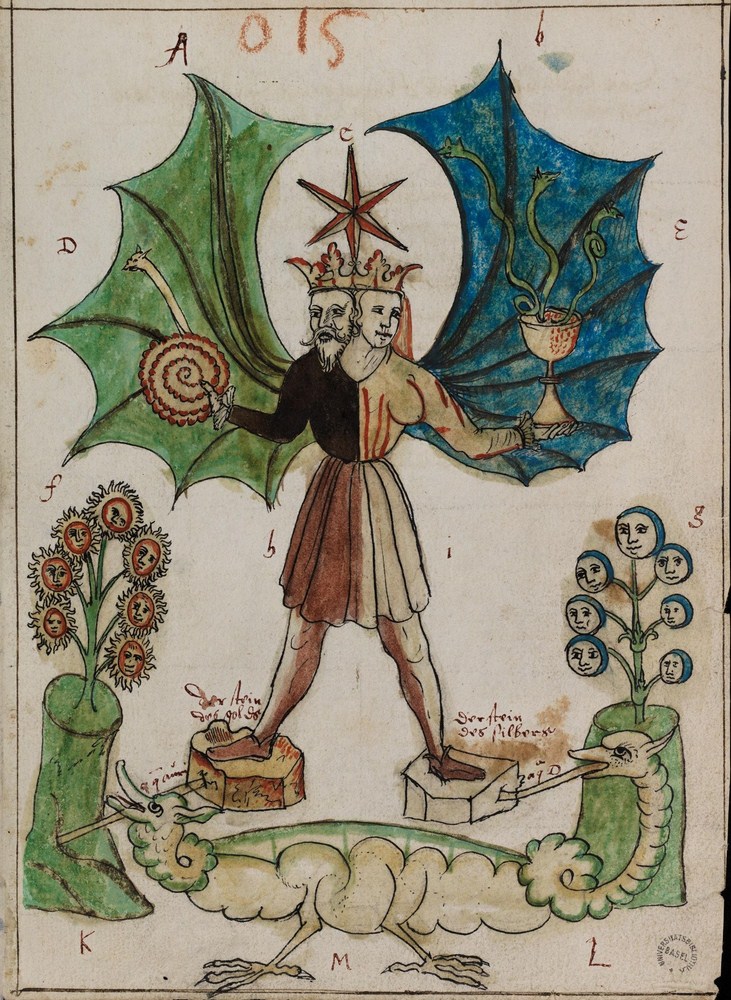 015
A
b
C
D
E
f
g
h
i
der stein
des golds
der stein
des silbers
K
M
L
UNIVERSITÄTSBIBLIOTHEK
BASEL